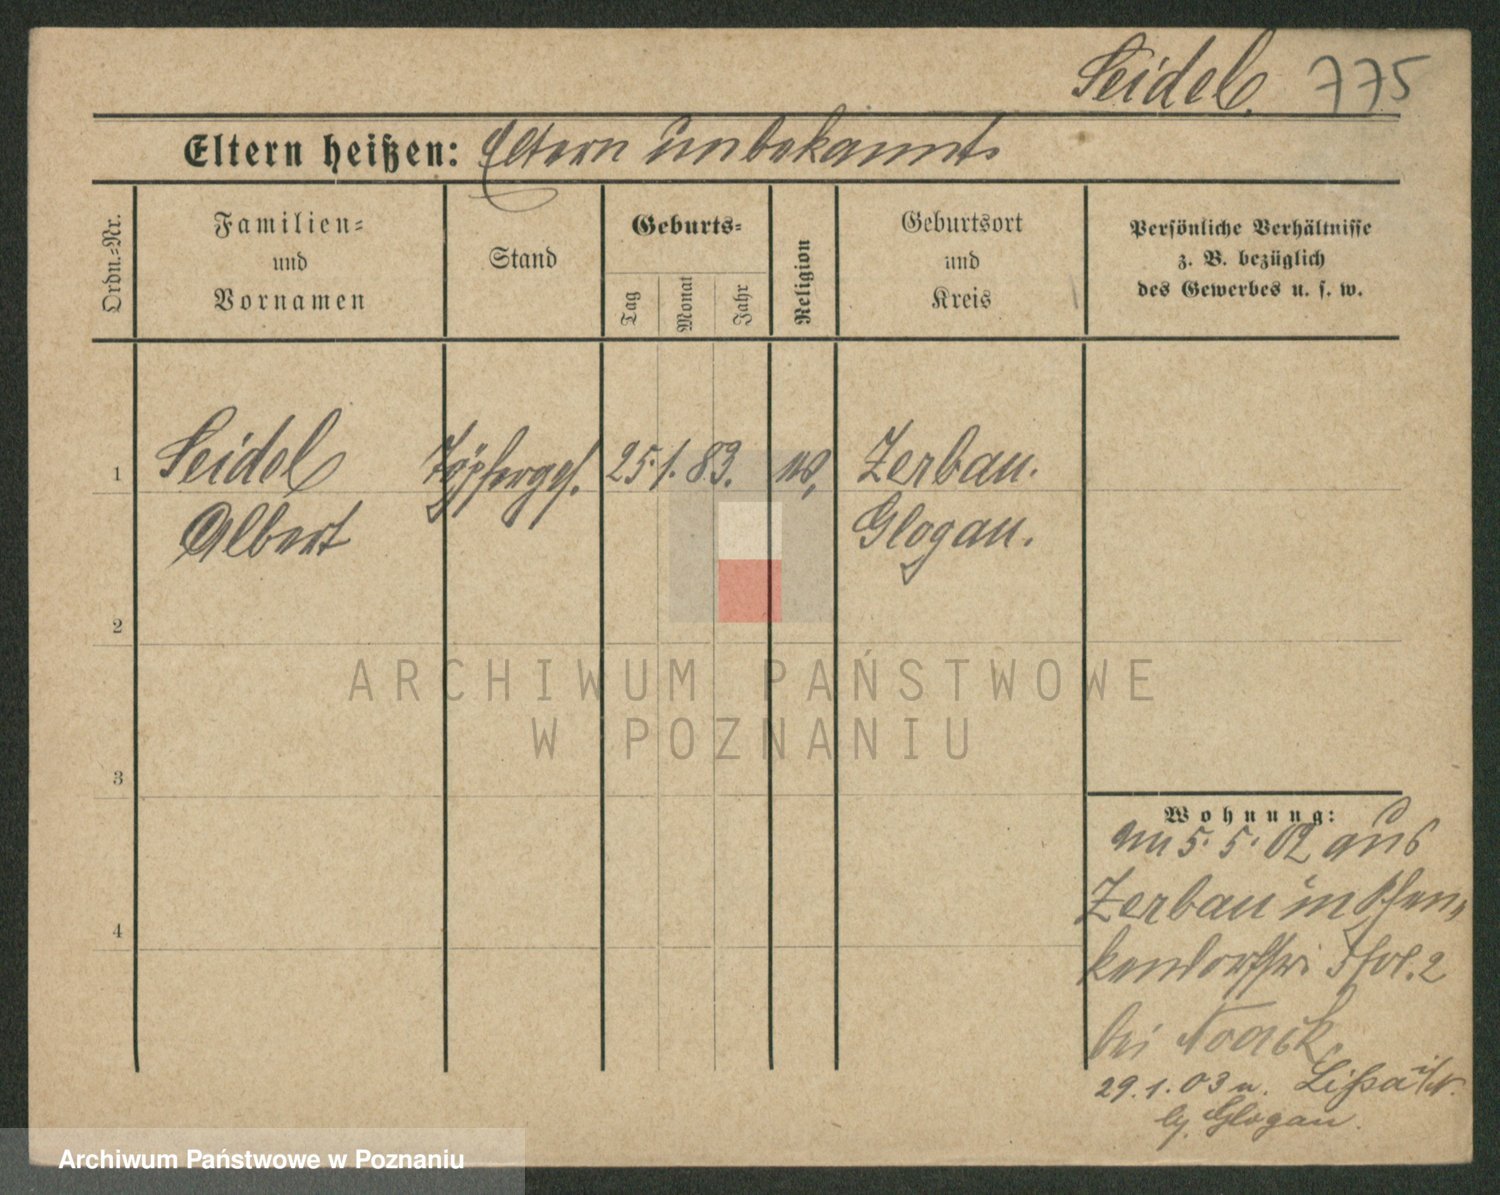 Seidel. 775
Eltern heißen: Eltern unbekannt.
Ordn.=Nr.
Familien=
und
Vornamen
Stand
Geburts=
Tag
Monat
Jahr
Religion
Geburtsort
und
Kreis
Persönliche Verhältnisse
z. B. bezüglich
des Gewerbes u. s. w.
1 Seidel Töpferges. 25. 1. 83. Zerbau.
Albert Glogau.
2
3
4
ARCHIWUM PAŃSTWOWE
W POZNANIU
Wohnung:
am 5. 5. 02 aus
Zerbau in
2
bei Noack
29. 1. 03 n. Lissa
Glogau.
Archiwum Państwowe w Poznaniu